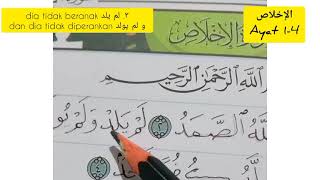 dia tidak beranak ٢. لم يلد
dan dia tidak diperankan و لم يولد
الإخلاص
Ayat 1-4
الإخلاص
اللَّهِ الرَّحْمَٰنِ الرَّحِيمِ
اللَّهُ الصَّمَدُ ٢ لَمْ يَلِدْ وَلَمْ